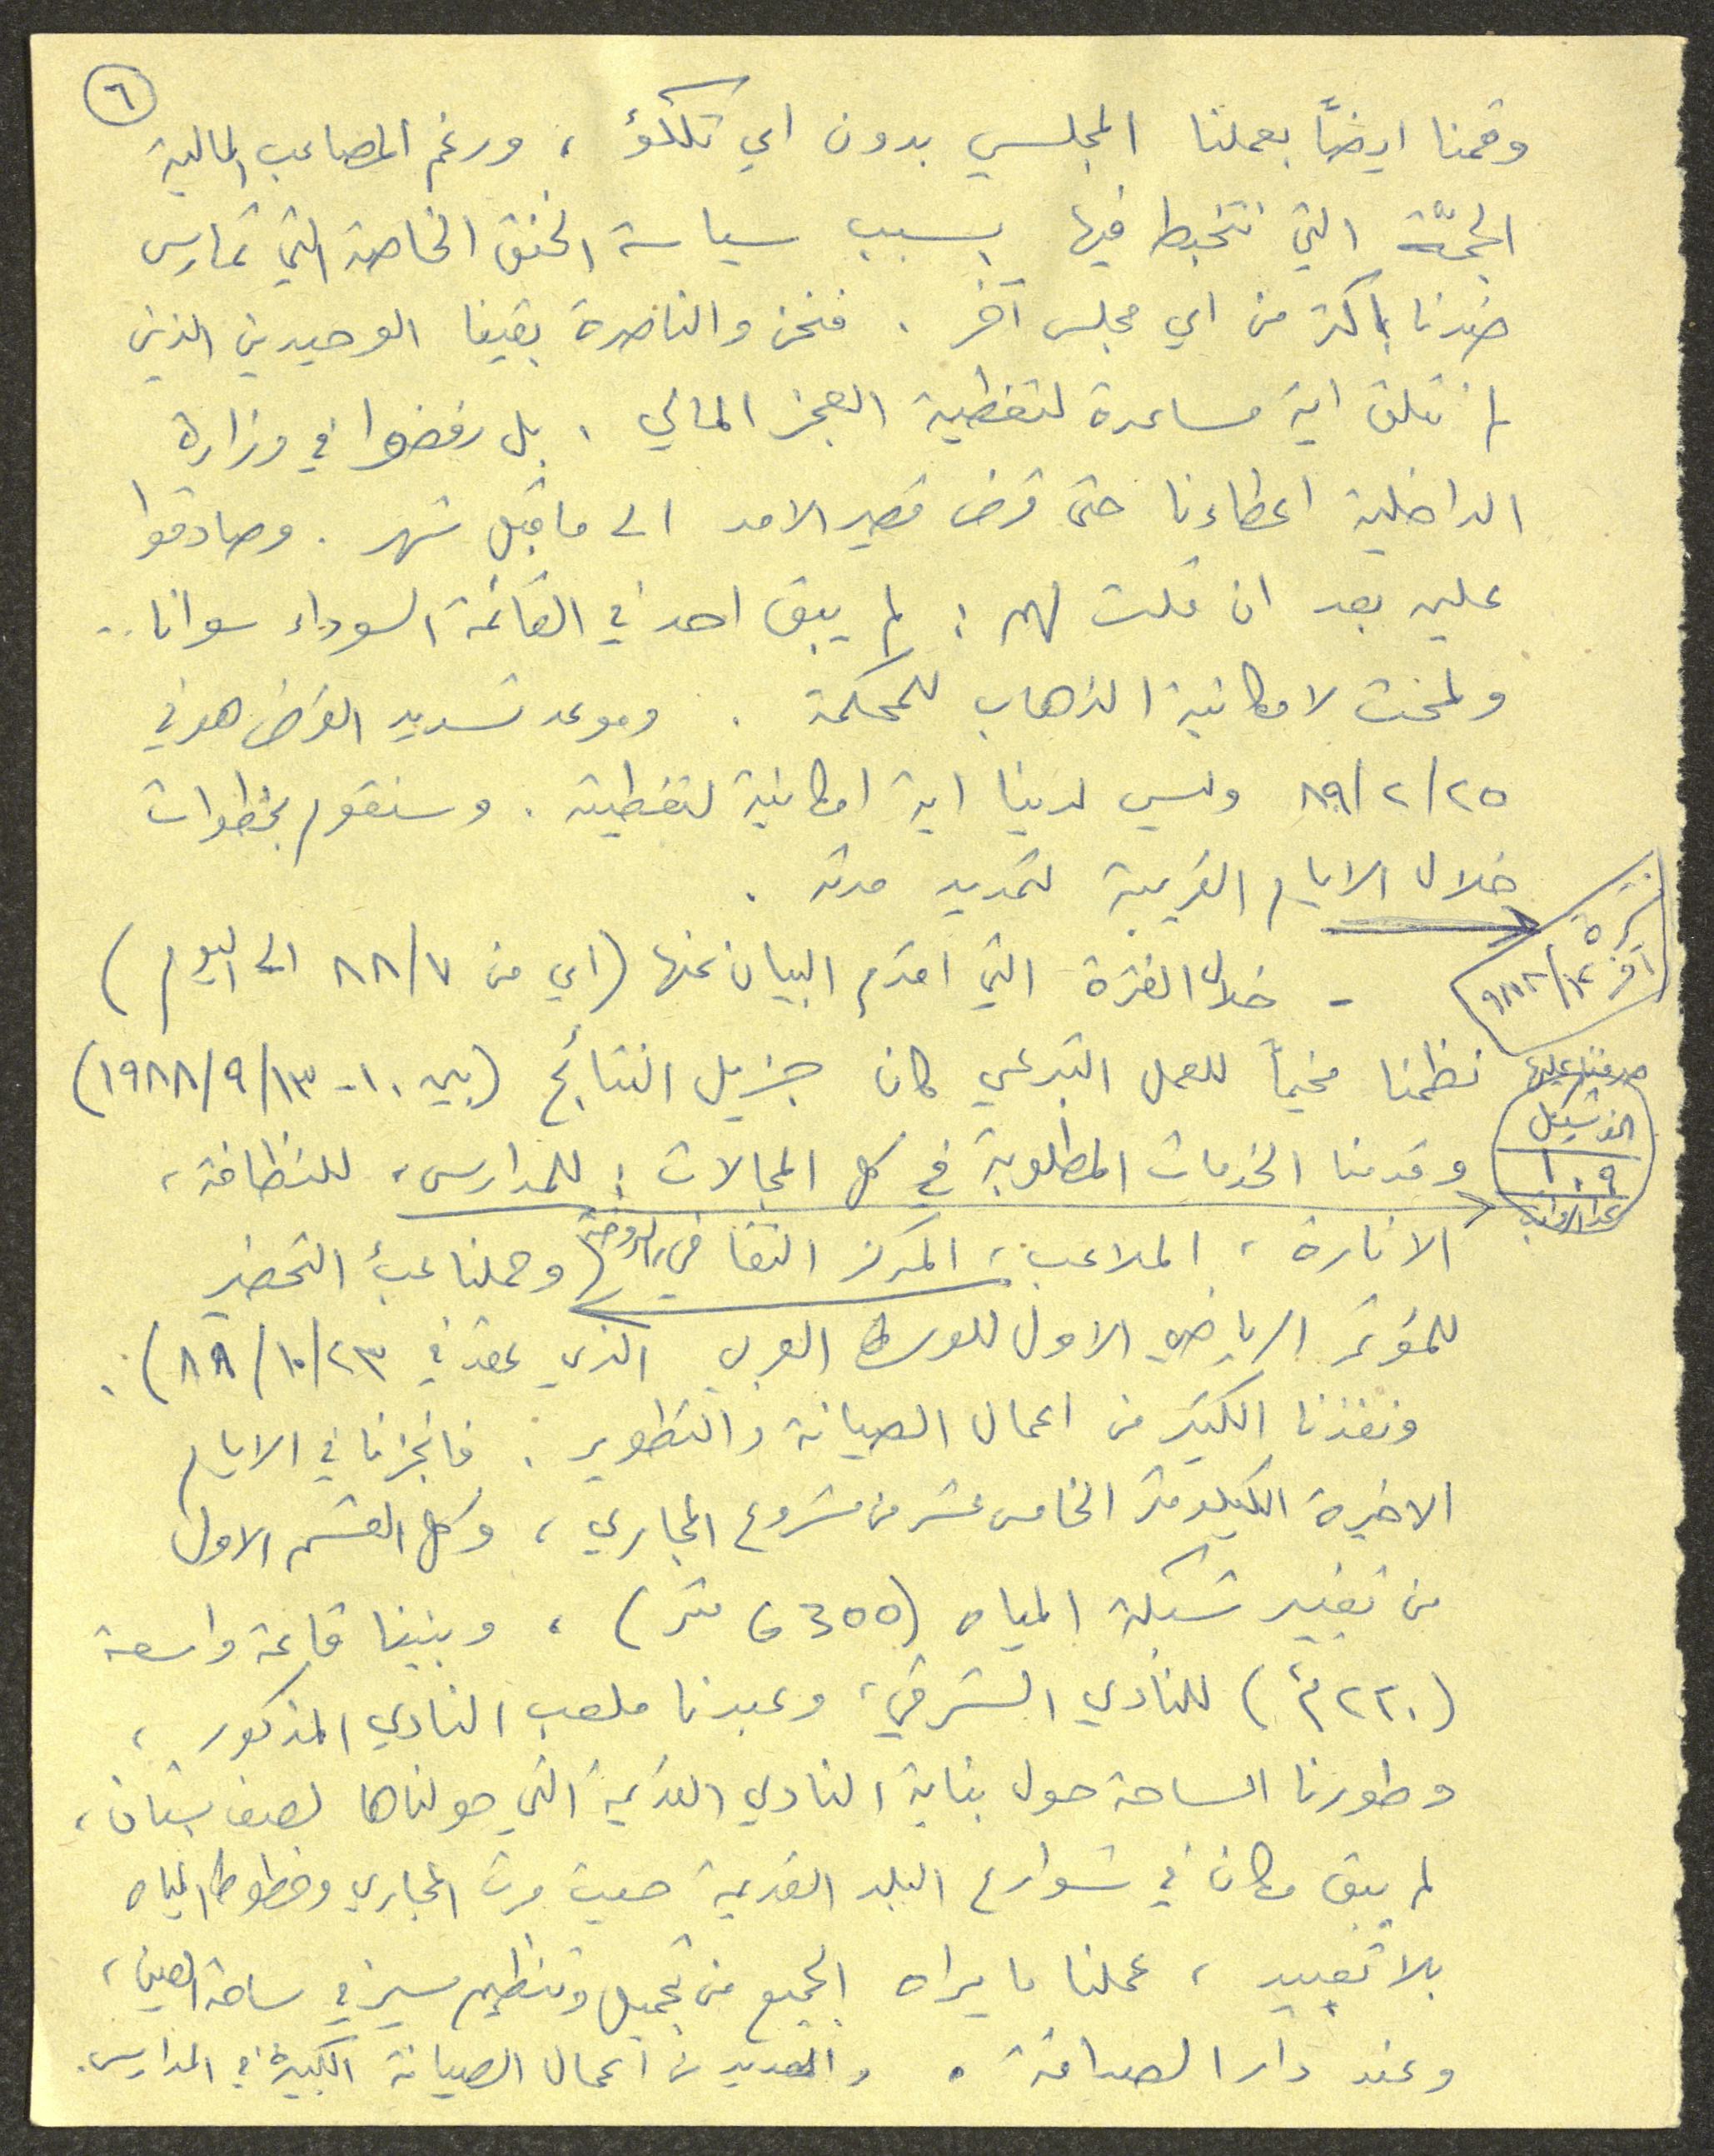 ٦
وقمنا ايضاً بعملنا المجلسي بدون اي تلكؤ ، ورغم المصاعب المالية
الجمّة التي نتخبط فيها بسبب سياسة الخنق الخاصة التي تمارس
ضدنا باكثر من اي مجلس آخر . فنحن والناصرة بقينا الوحيدين الذين
لم نتلق اية مساعدة لتغطية العجز المالي . بل رفضوا في وزارة
الداخلية اعطاءنا حتى قرض قصير الامد الى ما قبل شهر . وصادقوا
عليه بعد ان قلت لهم : لم يبق احد في القائمة السوداء سوانا ..
ولمحت لامكانية الذهاب للمحكمة . وموعد تسديد القرض هو في
٨٩/٢/٢٥ وليس لدينا اية امكانية لتغطيته . وسنقوم بخطوات
خلال الايام القريبة لتمديد مدته .
- خلال الفترة التي اقدم البيان عنها (اي من ٨٨/٧ الى اليوم)
نظمنا مخيماً للعمل التبرعي كان جزيل النتائج (بين ١٠-١٩٨٨/٩/١٣)
وقدمنا الخدمات المطلوبة في كل المجالات : للمدارس ، للنظافة ،
الانارة ، الملاعب ، المركز الثقافي ، الروضة وحملنا عبء التحضير
للمؤتمر الرياضي الاول للوسط العربي الذي عقد في ٨٨/١٠/٢٣) .
ونفذنا الكثير من اعمال الصيانة والتطوير . فانجزنا في الايام
الاخيرة الكيلومتر الخامس عشر من مشروع المجاري ، وكل القسم الاول
من تغيير شبكة المياه (6300 متر) ، وبنينا قاعة واسعة
(٢٢٠م٢) للنادي الشرقي ، وعبدنا ملعب النادي المذكور ،
وطورنا الساحة حول بناية النادي القديمة التي حولناها لصف بستان ،
لم يبق مكان في شوارع البلد القديمة حيث مرت المجاري وخطوط المياه
بلا تعبيد ، عملنا ما يراه الجميع من تجميل وتنظيم سير في ساحة العين ،
وعند دار الصداقة . والعديد من اعمال الصيانة الكبيرة في المدارس .